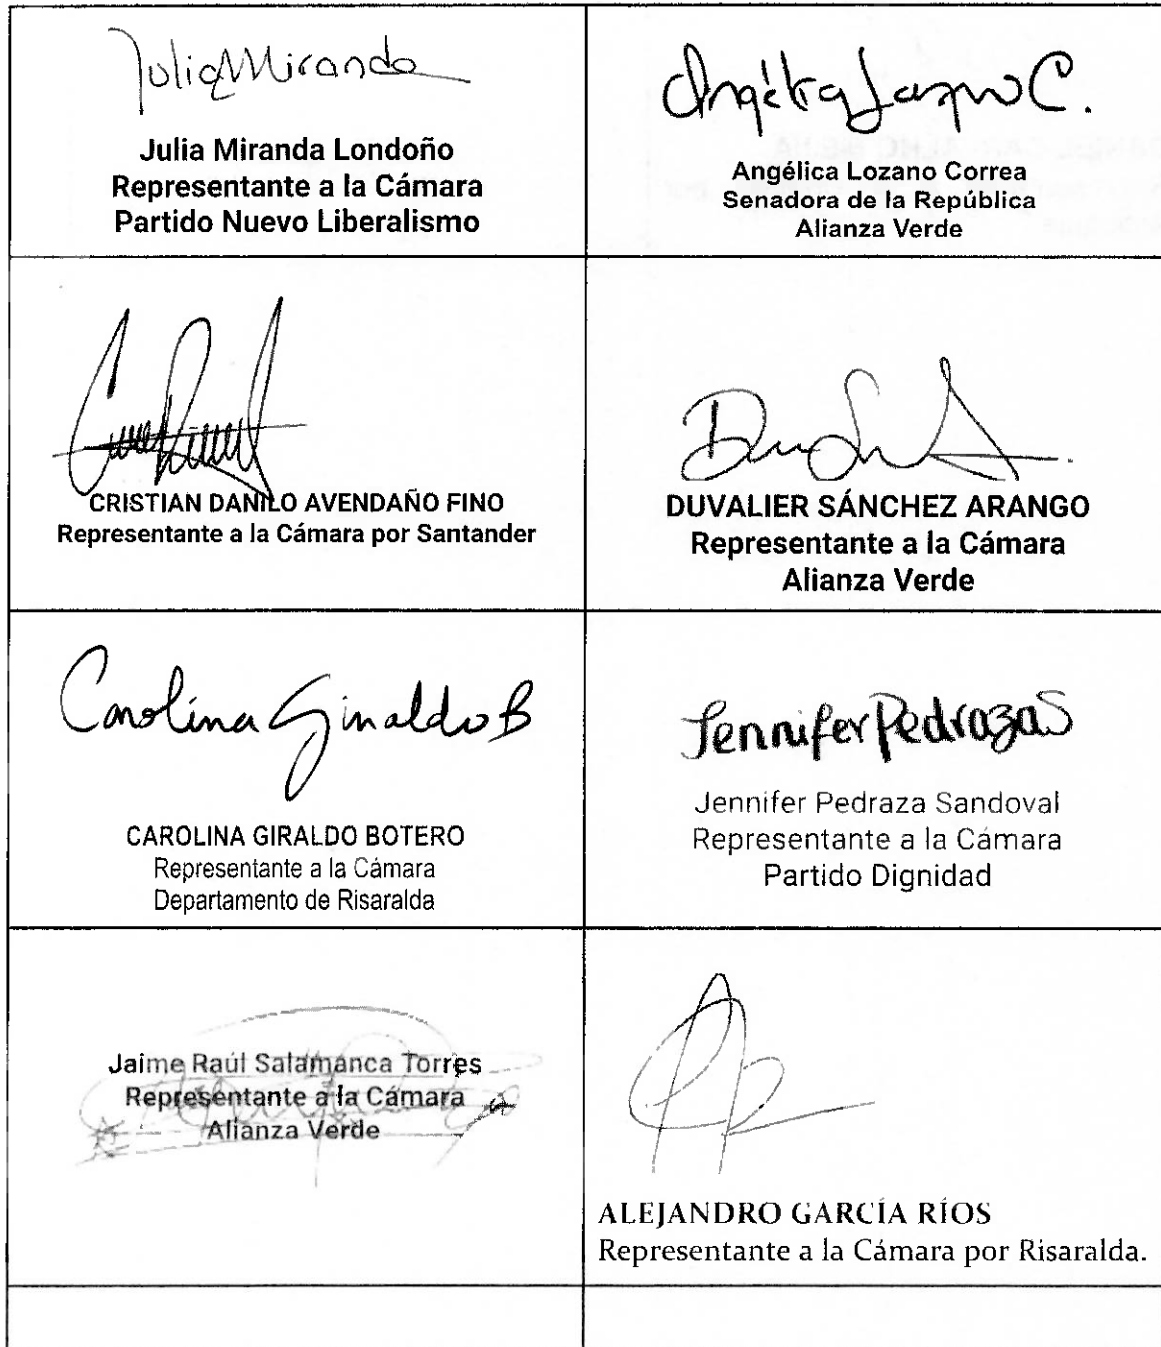 Julia Miranda
Julia Miranda Londoño
Representante a la Cámara
Partido Nuevo Liberalismo
Angélica Lozano C.
Angélica Lozano Correa
Senadora de la República
Alianza Verde
CRISTIAN DANILO AVENDAÑO FINO
Representante a la Cámara por Santander
DUVALIER SÁNCHEZ ARANGO
Representante a la Cámara
Alianza Verde
Carolina Giraldo B
CAROLINA GIRALDO BOTERO
Representante a la Cámara
Departamento de Risaralda
Jennifer Pedraza S
Jennifer Pedraza Sandoval
Representante a la Cámara
Partido Dignidad
Jaime Raúl Salamanca Torres
Representante a la Cámara
Alianza Verde
ALEJANDRO GARCÍA RÍOS
Representante a la Cámara por Risaralda.